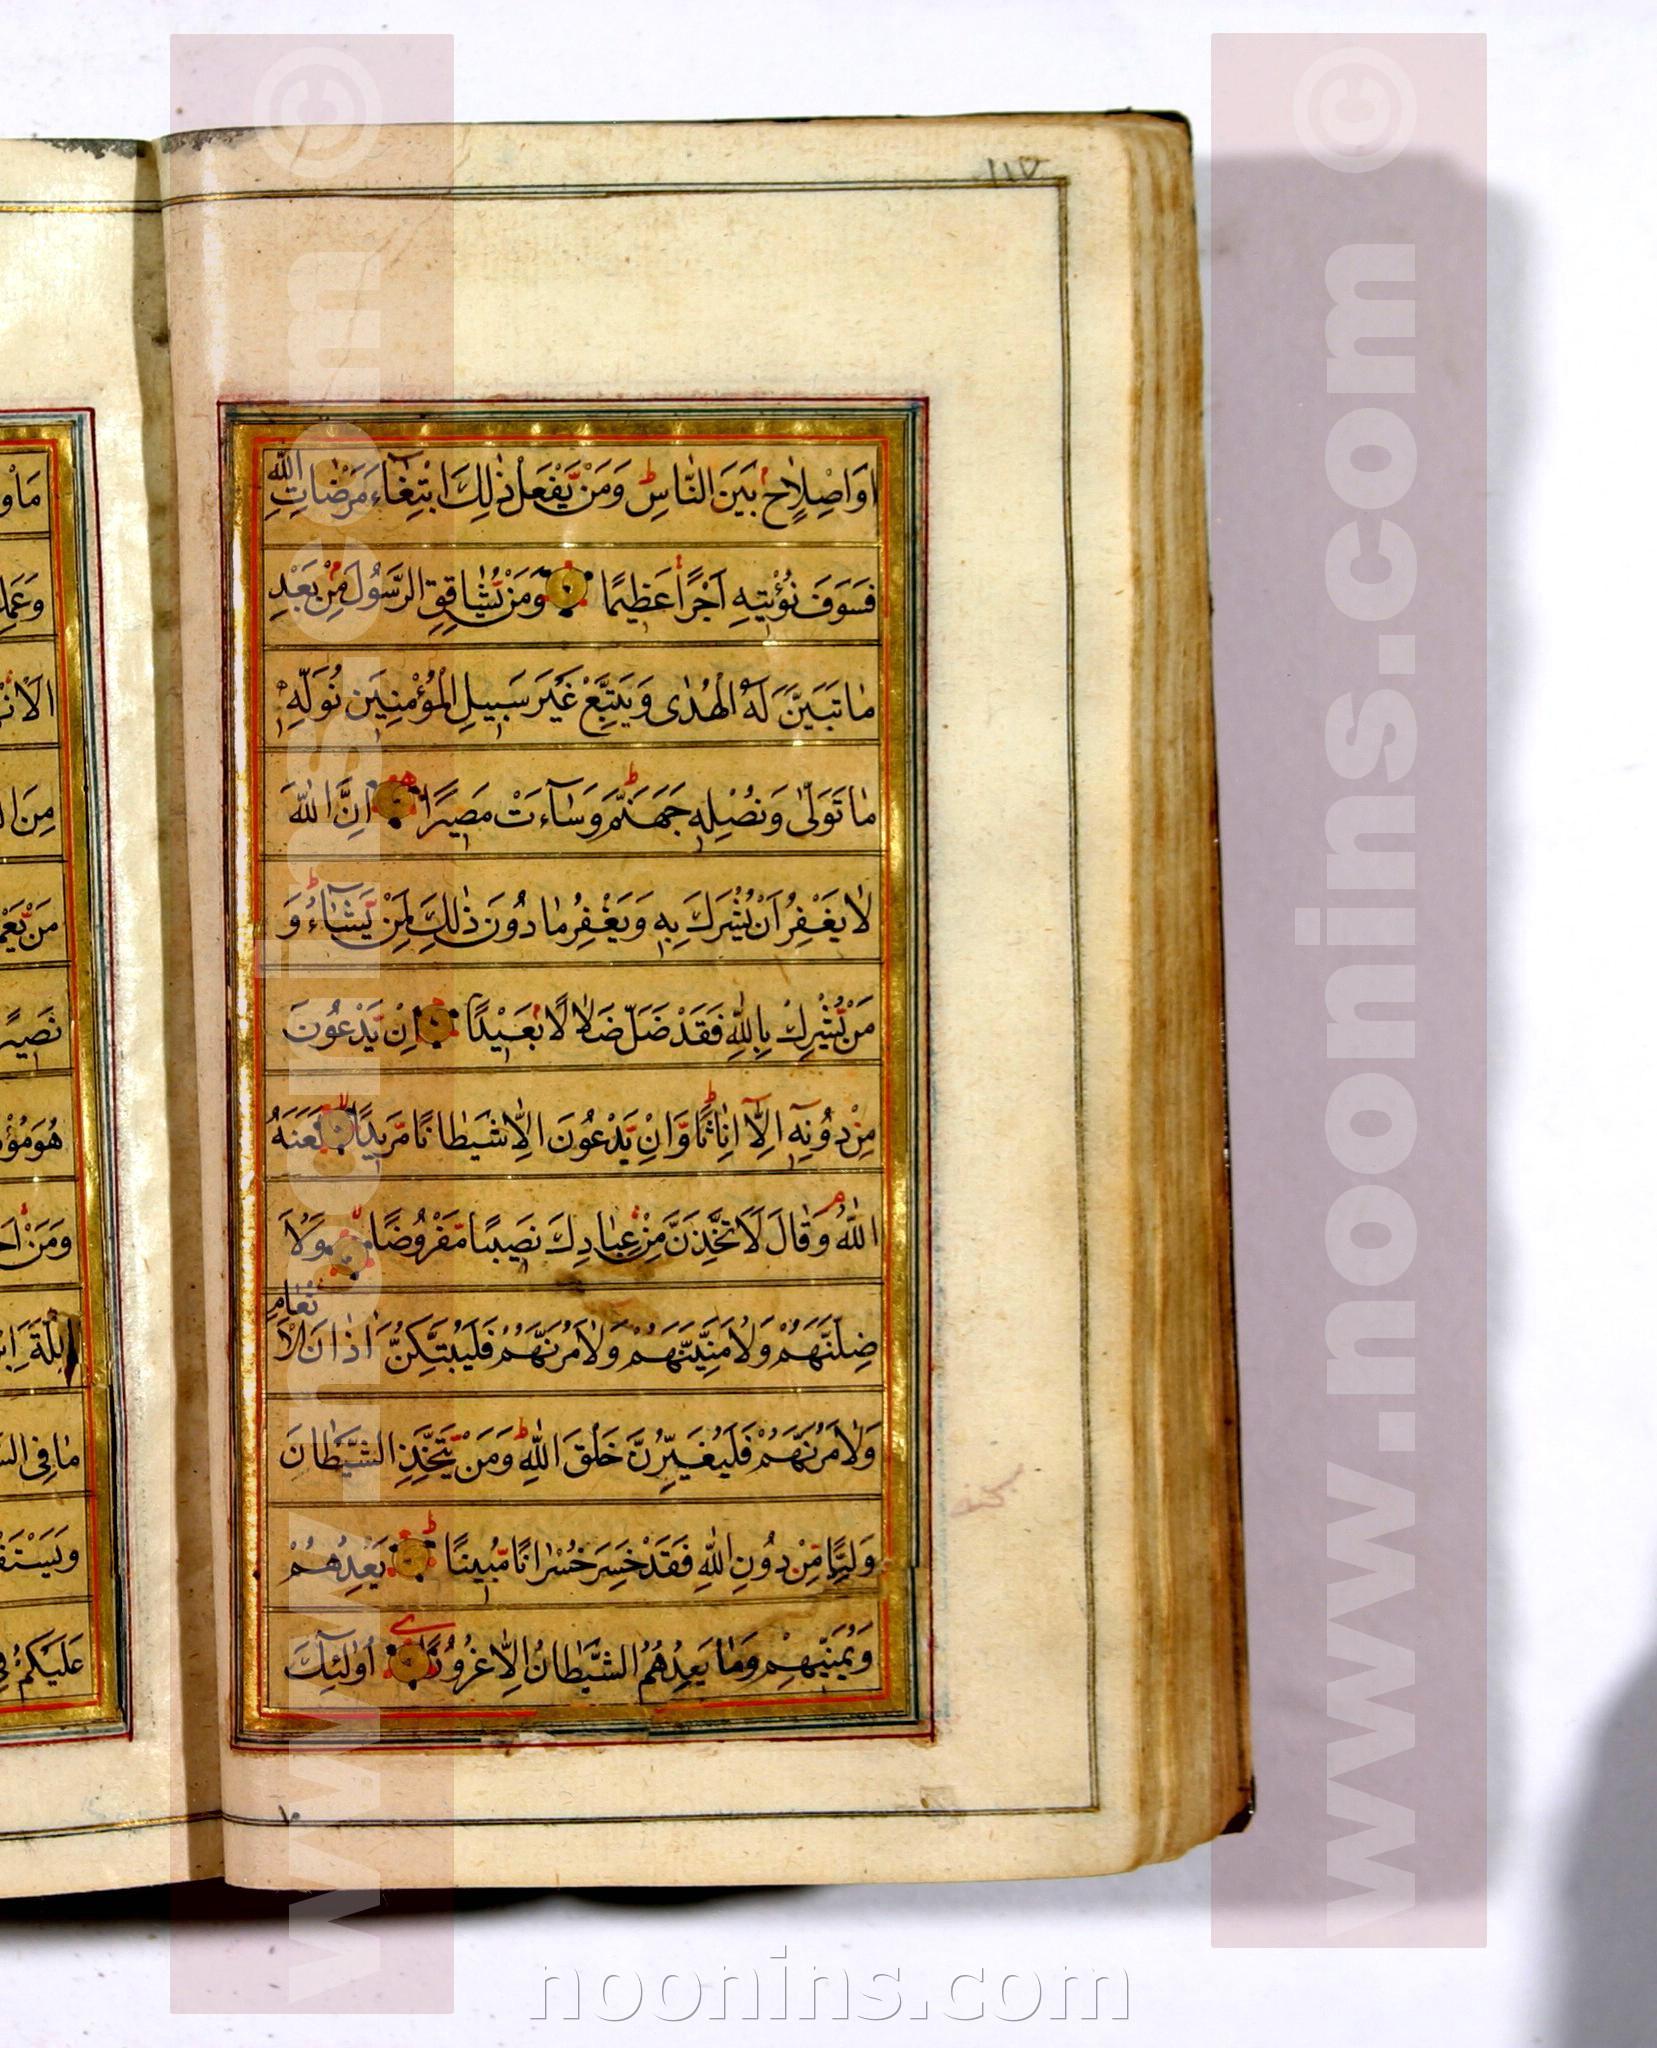 ١١٧
اَوْ اِصْلٰاحٍ بَيْنَ النّٰاسِ ط وَمَنْ يَّفْعَلْ ذٰلِكَ ابْتِغٰآءَ مَرْضٰاتِ اللّٰهِ
فَسَوْفَ نُؤْتٖيهِ اَجْرًا عَظٖيمًا وَمَنْ يُّشٰاقِقِ الرَّسُولَ مِنْ بَعْدِ
مٰا تَبَيَّنَ لَهُ الْهُدٰى وَيَتَّبِعْ غَيْرَ سَبٖيلِ الْمُؤْمِنٖينَ نُوَلِّهٖ
مٰا تَوَلّٰى وَنُصْلِهٖ جَهَنَّمَ ط وَسٰآءَتْ مَصٖيرًا اِنَّ اللّٰهَ
لٰا يَغْفِرُ اَنْ يُّشْرَكَ بِهٖ وَيَغْفِرُ مٰا دُونَ ذٰلِكَ لِمَنْ يَّشٰآءُ ط وَ
مَنْ يُّشْرِكْ بِاللّٰهِ فَقَدْ ضَلَّ ضَلٰالًا بَعٖيدًا اِنْ يَّدْعُونَ
مِنْ دُونِهٖٓ اِلّٰآ اِنٰاثًا ط وَّاِنْ يَّدْعُونَ اِلّٰا شَيْطٰانًا مَّرٖيدًا لا لَعَنَهُ
اللّٰهُ م وَقٰالَ لَاَتَّخِذَنَّ مِنْ عِبٰادِكَ نَصٖيبًا مَّفْرُوضًا لا وَّلَاُ
ضِلَّنَّهُمْ وَلَاُمَنِّيَنَّهُمْ وَلَاٰمُرَنَّهُمْ فَلَيُبَتِّكُنَّ اٰذٰانَ الْاَنْعٰامِ
وَلَاٰمُرَنَّهُمْ فَلَيُغَيِّرُنَّ خَلْقَ اللّٰهِ ط وَمَنْ يَّتَّخِذِ الشَّيْطٰانَ
وَلِيًّا مِّنْ دُونِ اللّٰهِ فَقَدْ خَسِرَ خُسْرٰانًا مُّبٖينًا ط يَعِدُهُمْ
وَيُمَنّٖيهِمْ وَمٰا يَعِدُهُمُ الشَّيْطٰانُ اِلّٰا غُرُورًا اُولٰٓئِكَ
www.noonins.com ©
www.noonins.com ©
noonins.com